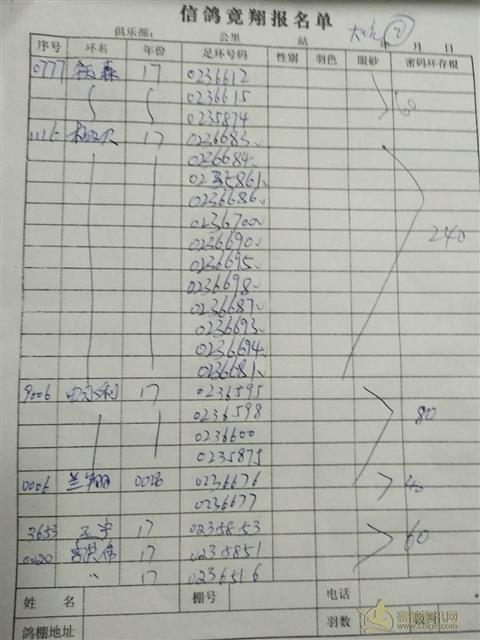 信鸽竞翔报名单
俱乐部： 公里 站 年 月 日
序号 环名 年份 足环号码 性别 羽色 眼砂 密码环存根
0777 17 0236612
0236615 60
0235874
1116 17 0236683
0236684
0235861
0236686
0236700
0236690 240
0236695
0236698
0236687
0236693
0236694
0236681
9006 17 0236595
0236598 80
0236600
0235875
0006 兰翔 0236676 40
0236677
3653 王宇 17 0235853 60
0020 17 0235851
〃 17 0236516
姓 名 棚号 电话
鸽棚地址 羽数